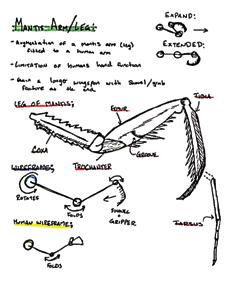 MANTIS ARM/LEG:
EXPAND:
- Augmentation of a mantis arm (leg)
fitted to a human arm
EXTENDED:
- Limitation of humans hand function
- Gain a longer wingspan with shovel/grab
feature at the end
LEG OF MANTIS:
TIBIA
FEMUR
GROOVE
COXA
WIREFRAME:
TROCHANTER
ROTATES
FOLDS
SHOVEL
+
GRIPPER
HUMAN WIREFRAME:
FOLDS
TARSUS